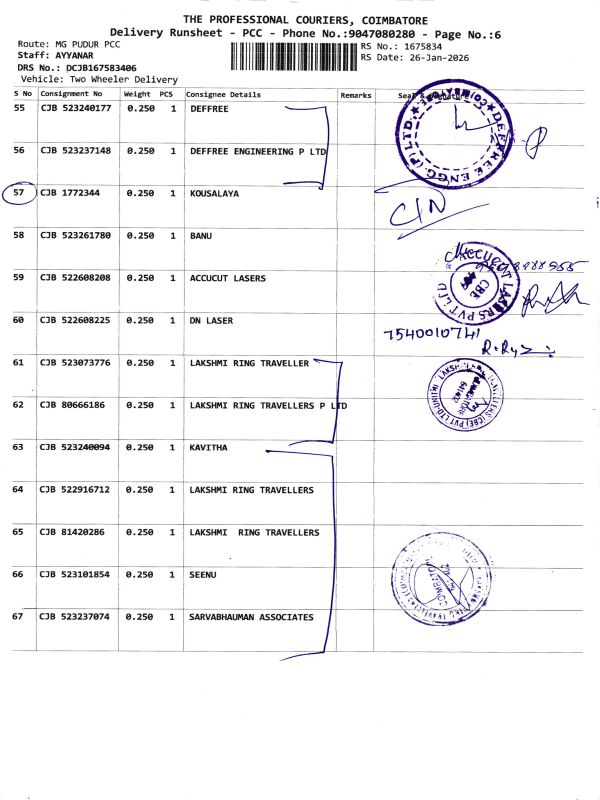 THE PROFESSIONAL COURIERS, COIMBATORE
Delivery Runsheet - PCC - Phone No.:9047080280 - Page No.:6
Route: MG PUDUR PCC
Staff: AYYANAR
DRS No.: DCJB167583406
Vehicle: Two Wheeler Delivery
RS No.: 1675834
RS Date: 26-Jan-2026
S No Consignment No Weight PCS Consignee Details Remarks Seal & Signature
55 CJB 523240177 0.250 1 DEFFREE
56 CJB 523237148 0.250 1 DEFFREE ENGINEERING P LTD
DEFFREE ENGG (P) LTD
57 CJB 1772344 0.250 1 KOUSALAYA
58 CJB 523261780 0.250 1 BANU
59 CJB 522608208 0.250 1 ACCUCUT LASERS
ACCUCUT LASERS PVT LTD
CBE
60 CJB 522608225 0.250 1 DN LASER
7540010741
61 CJB 523073776 0.250 1 LAKSHMI RING TRAVELLER
62 CJB 80666186 0.250 1 LAKSHMI RING TRAVELLERS P LTD
63 CJB 523240094 0.250 1 KAVITHA
64 CJB 522916712 0.250 1 LAKSHMI RING TRAVELLERS
65 CJB 81420286 0.250 1 LAKSHMI RING TRAVELLERS
66 CJB 523101854 0.250 1 SEENU
67 CJB 523237074 0.250 1 SARVABHAUMAN ASSOCIATES